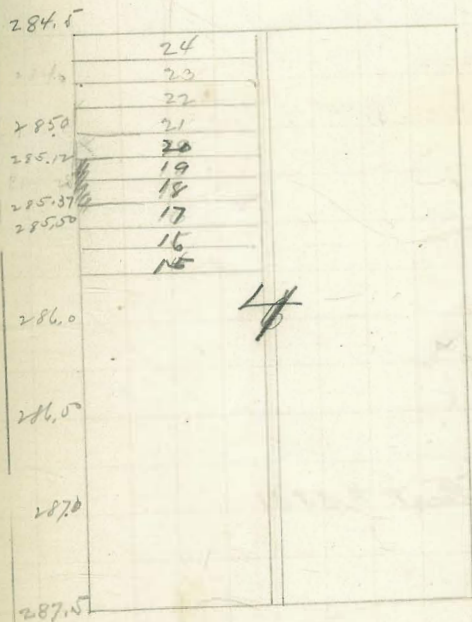 284.5
24
23
22
285.0 21
285.12 20
19
18
285.37 17
285.50
16
15
4
286.0
286.50
287.0
287.5